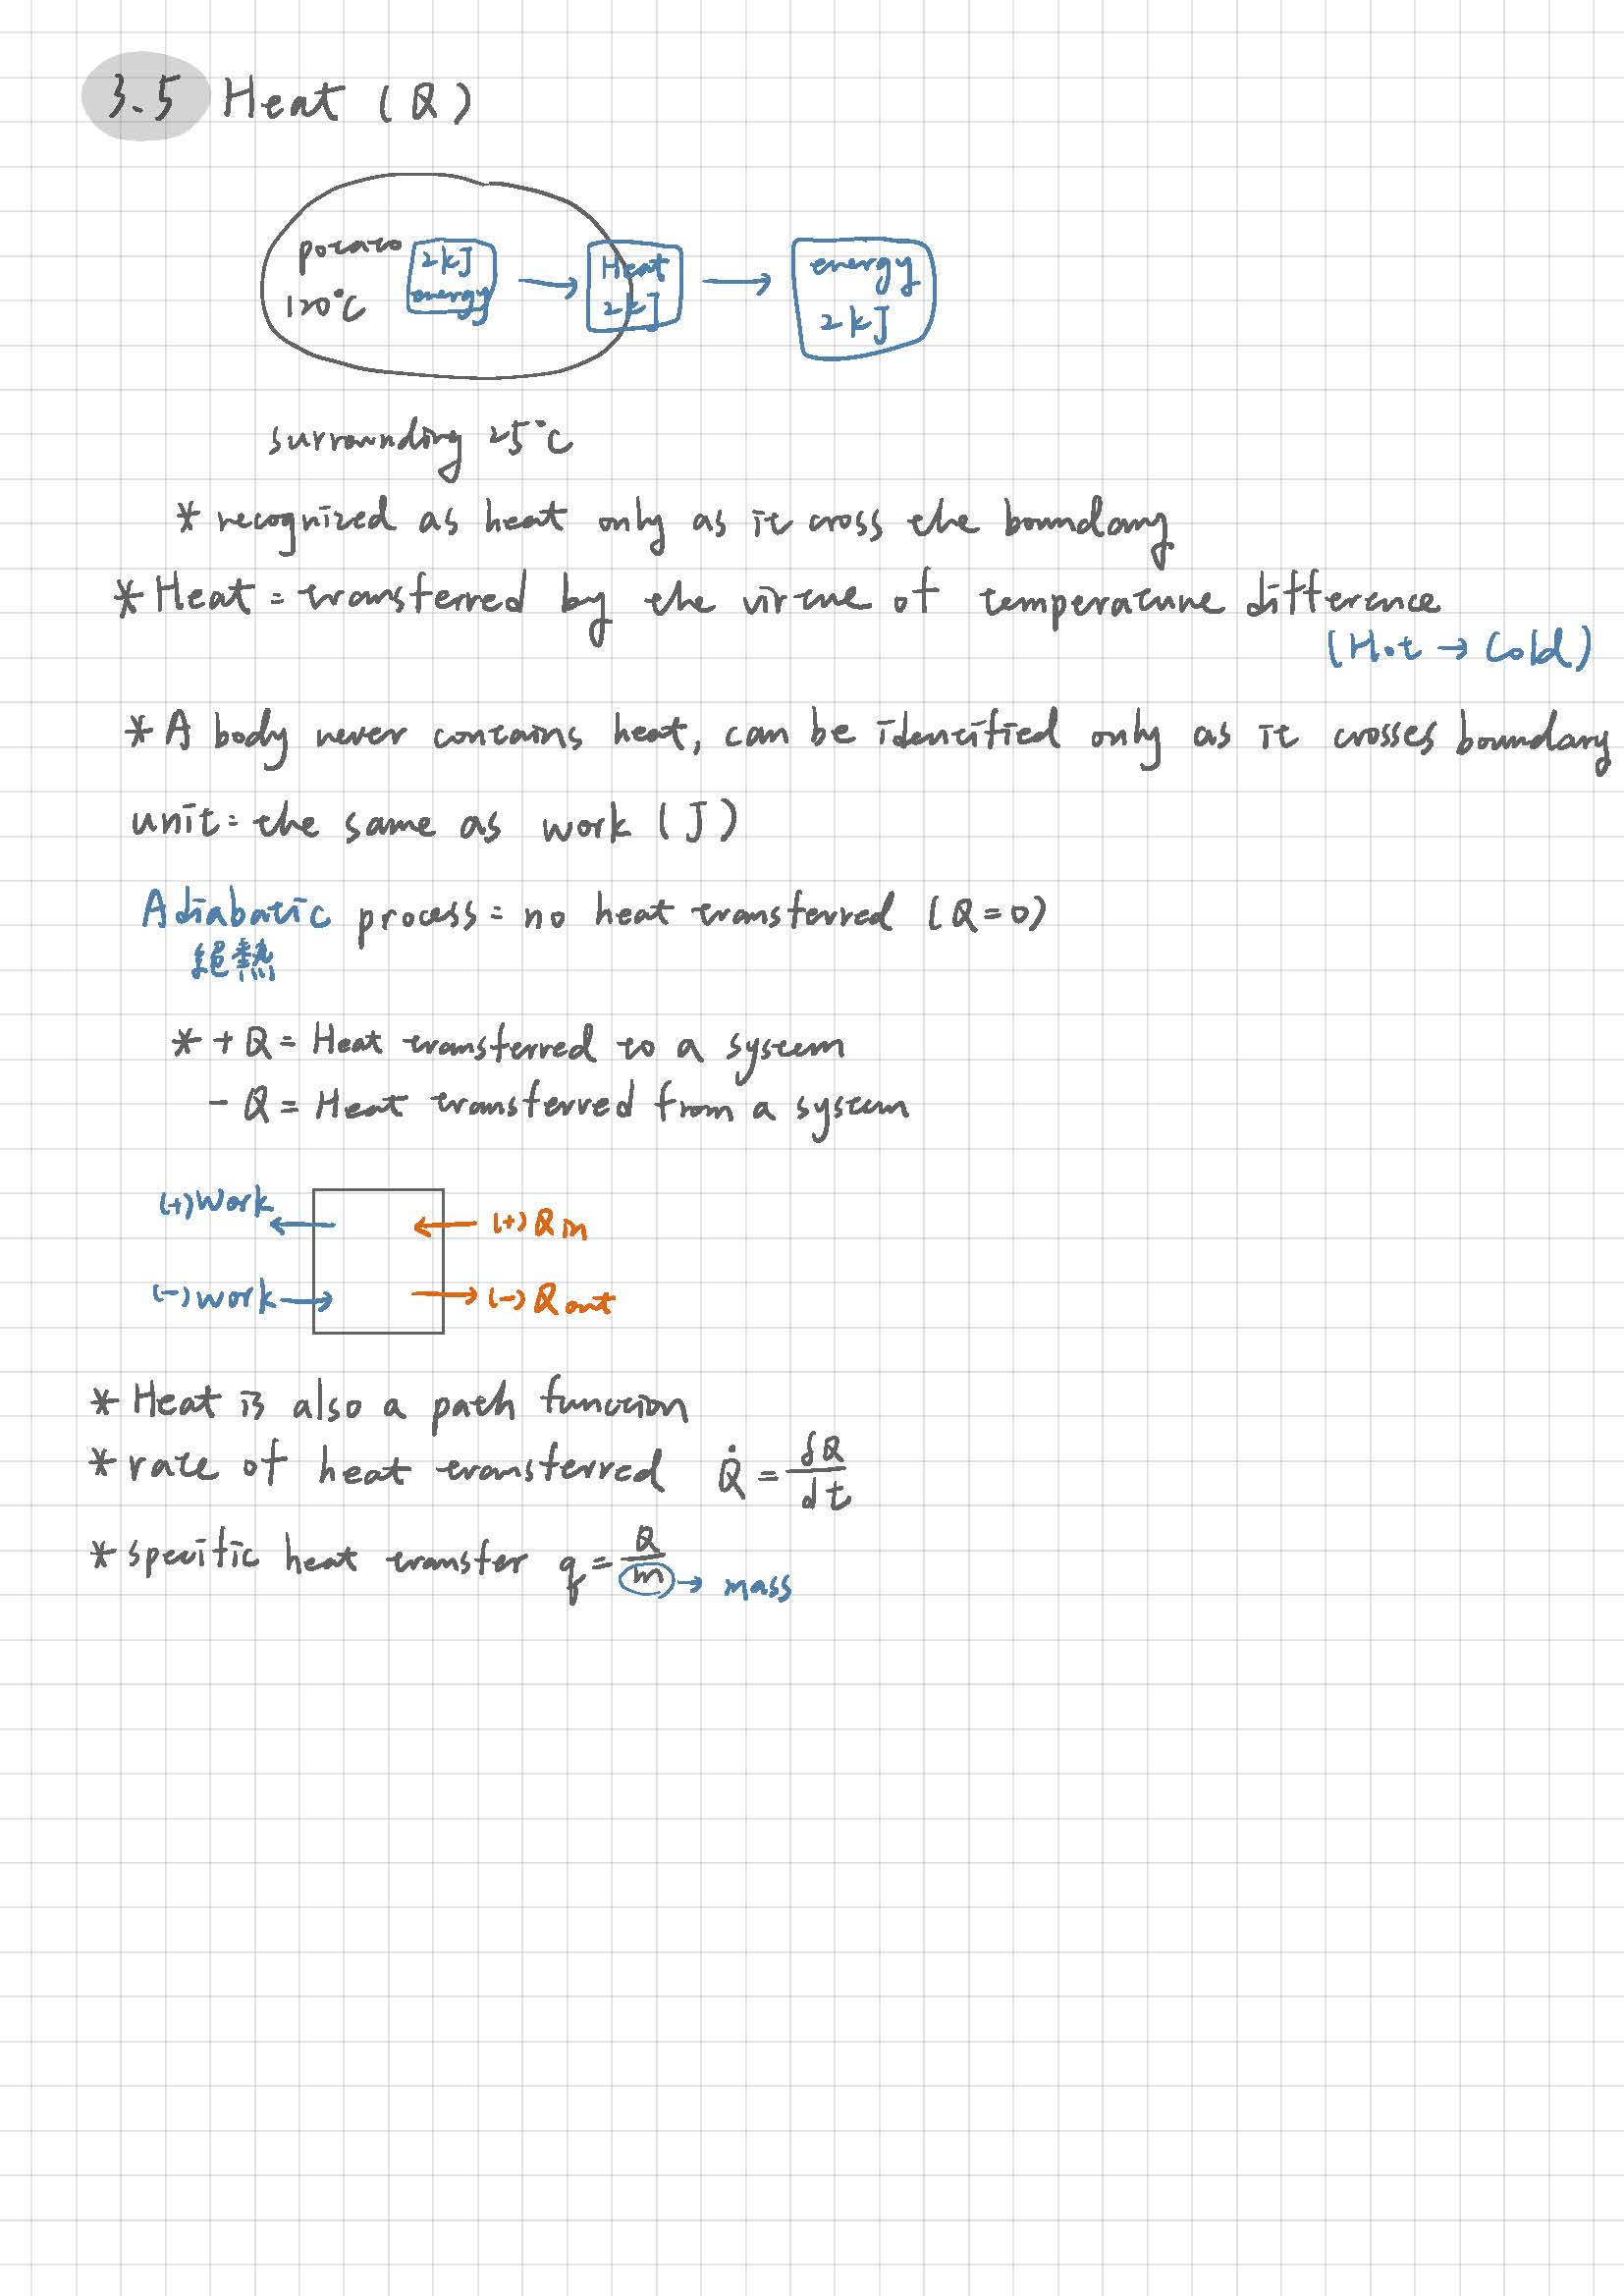 3.5 Heat (Q)
potato 120°C
2kJ energy → Heat 2kJ → energy 2kJ
surrounding 25°C
* recognized as heat only as it cross the boundary
* Heat = transferred by the virtue of temperature difference
(Hot → Cold)
* A body never contains heat, can be identified only as it crosses boundary
unit = the same as work (J)
Adiabatic process = no heat transferred (Q=0)
絕熱
* + Q = Heat transferred to a system
- Q = Heat transferred from a system
(+) Work ← ← (+) Q in
(-) work → → (-) Q out
* Heat is also a path function
* rate of heat transferred Q̇ = δQ/dt
* specific heat transfer q = Q/m → mass